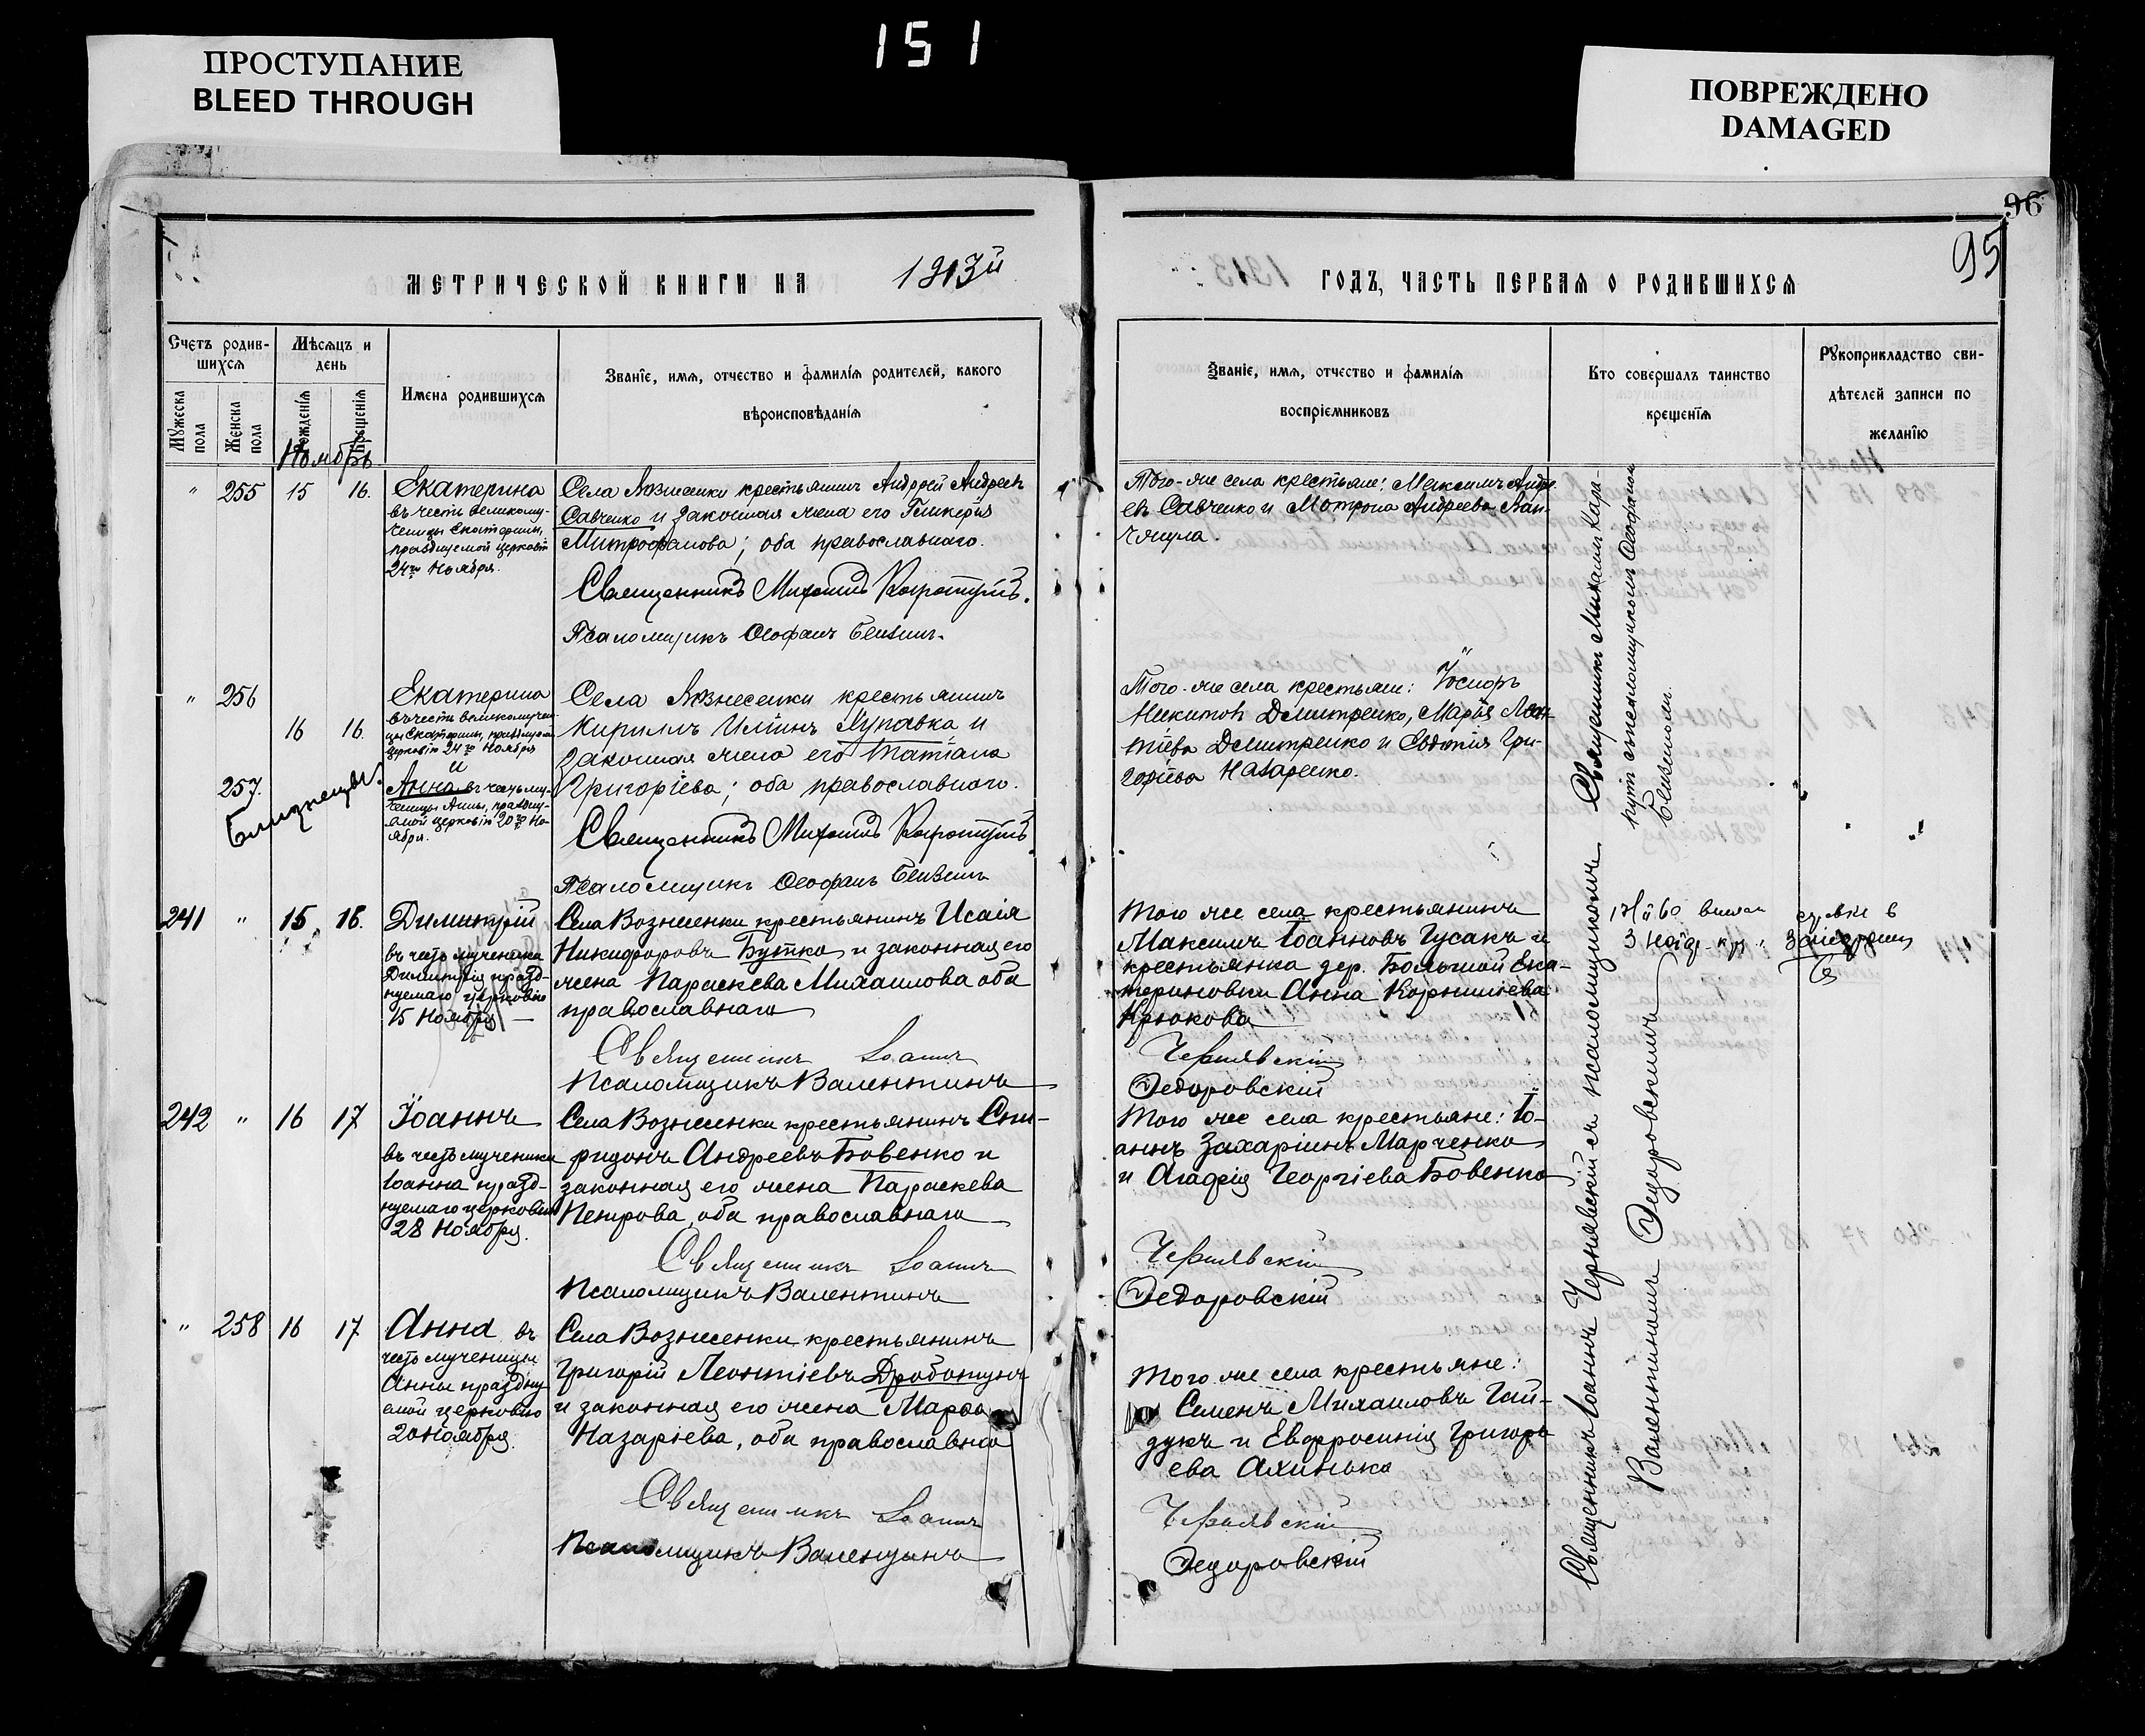 151
ПРОСТУПАНИЕ
BLEED THROUGH
ПОВРЕЖДЕНО
DAMAGED
96
95
МЕТРИЧЕСКОЙ КНИГИ НА 1913й
ГОДЪ, ЧАСТЬ ПЕРВАЯ О РОДИВШИХСЯ
Счетъ родив-
шихся
Мужеска пола
Женска пола
Мѣсяцъ и
день
Рожденія
Крещенія
Имена родившихся
Званіе, имя, отчество и фамилія родителей, какого
вѣроисповѣданія
Званіе, имя, отчество и фамилія
воспріемниковъ
Кто совершалъ таинство
крещенія
Рукоприкладство сви-
дѣтелей записи по
желанію
Ноябрь
" 255 15 16.
Екатерина
въ честь великому-
ченицы Екатерины,
празднуемой церковію
24го Ноября.
Села Вознесенки крестьянинъ Андрей Андреевъ
Савченко и законная жена его Гликерія
Митрофанова; оба православнаго.
Священникъ Михаилъ
Псаломщикъ Ѳеофанъ
Того-же села крестьяне: Максимъ Андре-
евъ Савченко и Мотрона Андреева
" 256
16 16.
257.
Близнецы.
Екатерина
въ честь великомучени-
цы Екатерины, празднуемой
церковію 24го Ноября
и
Анна въ честь му-
ченицы Анны, праздну-
емой церковію 20го Но-
ября.
Села Вознесенки крестьянинъ
Кириллъ Ильинъ Лупавка и
законная жена его Татіана
Григоріева; оба православнаго.
Священникъ Михаилъ
Псаломщикъ Ѳеофанъ
Того-же села крестьяне: Іосифъ
Никитовъ Дмитренко, Марія Леон-
тіева Дмитренко и Евдокія Гри-
горіева Назаренко.
Священникъ Михаилъ
съ псаломщикомъ Ѳеофаномъ
241 " 15 16.
Димитрій
въ честь мученика
Димитрія празд-
нуемаго церковію
15 Ноября
Села Вознесенки крестьянинъ Исаія
Никифоровъ Бутко и законная его
жена Параскева Михаилова оба
православнаго
Священникъ Іоаннъ
Псаломщикъ Валентинъ
Того же села крестьянинъ
Максимъ Іоанновъ Гусакъ и
крестьянка дер. Большой Ека-
териновки Анна Корниліева
Крюкова
Чернявскій
Федоровскій
242 " 16 17
Іоаннъ
въ честь мученика
Іоанна празд-
нуемаго церковію
28 Ноября.
Села Вознесенки крестьянинъ Спи-
ридонъ Андреевъ Бовенко и
законная его жена Параскева
Петрова, оба православнаго
Священникъ Іоаннъ
Псаломщикъ Валентинъ
Того же села крестьяне: Іо-
аннъ Захаріинъ Марченко
и Агафія Георгіева Бовенко
Чернявскій
Федоровскій
" 258 16 17
Анна въ
честь мученицы
Анны праздну-
емой церковію
20 Ноября.
Села Вознесенки крестьянинъ
Григорій Леонтіевъ Дроботунъ
и законная его жена Марѳа
Назаріева, оба православнаго
Священникъ Іоаннъ
Псаломщикъ Валентинъ
Того же села крестьяне:
Семенъ Михаиловъ Гай-
дукъ и Евфросинія Григорь-
ева Ахинько
Чернявскій
Федоровскій
Священникъ Іоаннъ Чернявскій съ псаломщикомъ
Валентиномъ Федоровскимъ